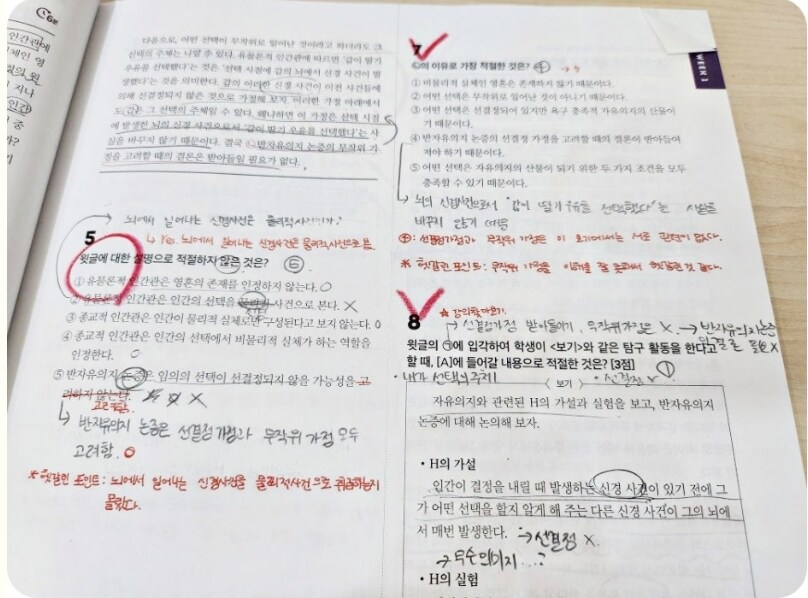 6분
인간관에
다음으로, 어떤 선택이 무작위로 일어난 것이라고 하더라도 그
선택의 주체는 나일 수 있다. 유물론적 인간관에 따르면 '갑이 딸기
우유를 선택했다'는 것은 '선택 시점에 갑의 뇌에서 신경 사건이 발
생했다'는 것을 의미한다. 갑의 이러한 신경 사건이 이전 사건들에
의해 선결정되지 않은 것으로 가정해 보자. 이러한 가정 아래에서
도 갑은 그 선택의 주체일 수 있다. 왜냐하면 이 가정은 선택 시점
에 발생한 뇌의 신경 사건으로서 '갑이 딸기 우유를 선택했다'는 사
실을 바꾸지 않기 때문이다. 결국 ㉡반자유의지 논증의 무작위 가
정을 고려할 때의 결론은 받아들일 필요가 없다.
뇌에서 일어나는 신경사건은 물리적사건인가?
↳ Yes. 뇌에서 일어나는 신경사건은 물리적사건으로 봄.
5
윗글에 대한 설명으로 적절하지 않은 것은? ⑤
① 유물론적 인간관은 영혼의 존재를 인정하지 않는다. O
② 유물론적 인간관은 인간의 선택을 물리적 사건으로 본다. X
③ 종교적 인간관은 인간이 물리적 실체로만 구성된다고 보지 않는다. O
④ 종교적 인간관은 인간의 선택에서 비물리적 실체가 하는 역할을
인정한다. O
⑤ 반자유의지 논증은 임의의 선택이 선결정되지 않을 가능성을 고
려하지 않는다. X
고려함.
↳ 반자유의지 논증은 선결정 가정과 무작위 가정 모두
고려함. O
* 헷갈린 포인트: 뇌에서 일어나는 신경사건을 물리적사건으로 취급하는지
몰랐다.
WEEK 1
7
㉡의 이유로 가장 적절한 것은? ④
① 비물리적 실체인 영혼은 존재하지 않기 때문이다.
② 어떤 선택은 무작위로 일어난 것이 아니기 때문이다.
③ 어떤 선택은 선결정되어 있지만 욕구 충족적 자유의지의 산물이
기 때문이다.
④ 반자유의지 논증의 선결정 가정을 고려할 때의 결론이 받아들여
져야 하기 때문이다.
⑤ 어떤 선택은 자유의지의 산물이 되기 위한 두 가지 조건을 모두
충족할 수 있기 때문이다.
뇌의 신경사건으로서 "갑이 딸기 우유를 선택했다"는 사실을
바꾸지 않기 때문
④: 선결정가정과 무작위 가정은 이 보기에서는 서로 관련이 없다.
8
* 강의를 들어보기.
→ 선결정가정 받아들이기, 무작위가정은 X. → 반자유의지논증
윗글의 ㉠에 입각하여 학생이 <보기>와 같은 탐구 활동을 한다고
할 때, [A]에 들어갈 내용으로 적절한 것은? [3점] ①
· 내가 선택의 주체
<보기>
자유의지와 관련된 H의 가설과 실험을 보고, 반자유의지
논증에 대해 논의해 보자.
• H의 가설
인간이 결정을 내릴 때 발생하는 신경 사건이 있기 전에 그
가 어떤 선택을 할지 알게 해 주는 다른 신경 사건이 그의 뇌에
서 매번 발생한다. → 선결정 X.
• H의 실험